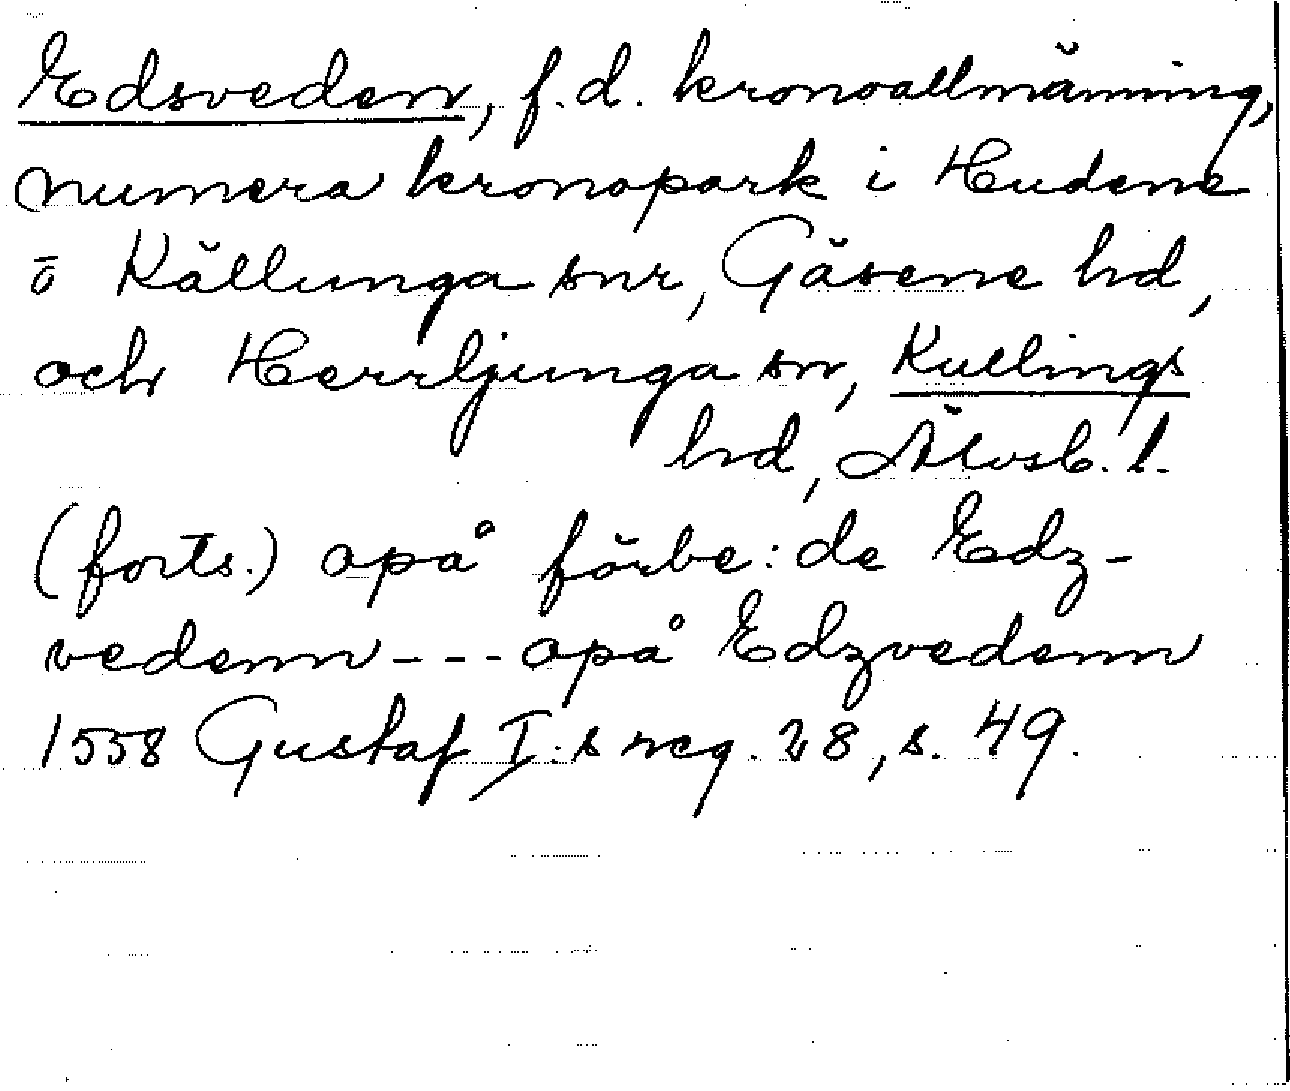 Edsveden, f.d. kronoallmänning,
numera kronopark i Hudene
o Källunga snr, Gäsene hd,
och Herrljunga sn, Kullings
hd, Älvsb. l.
(forts.) apå förbe:de Edz-
vedenn - - - apå Edzvedenn
1558 Gustaf I:s reg. 28, s. 49.